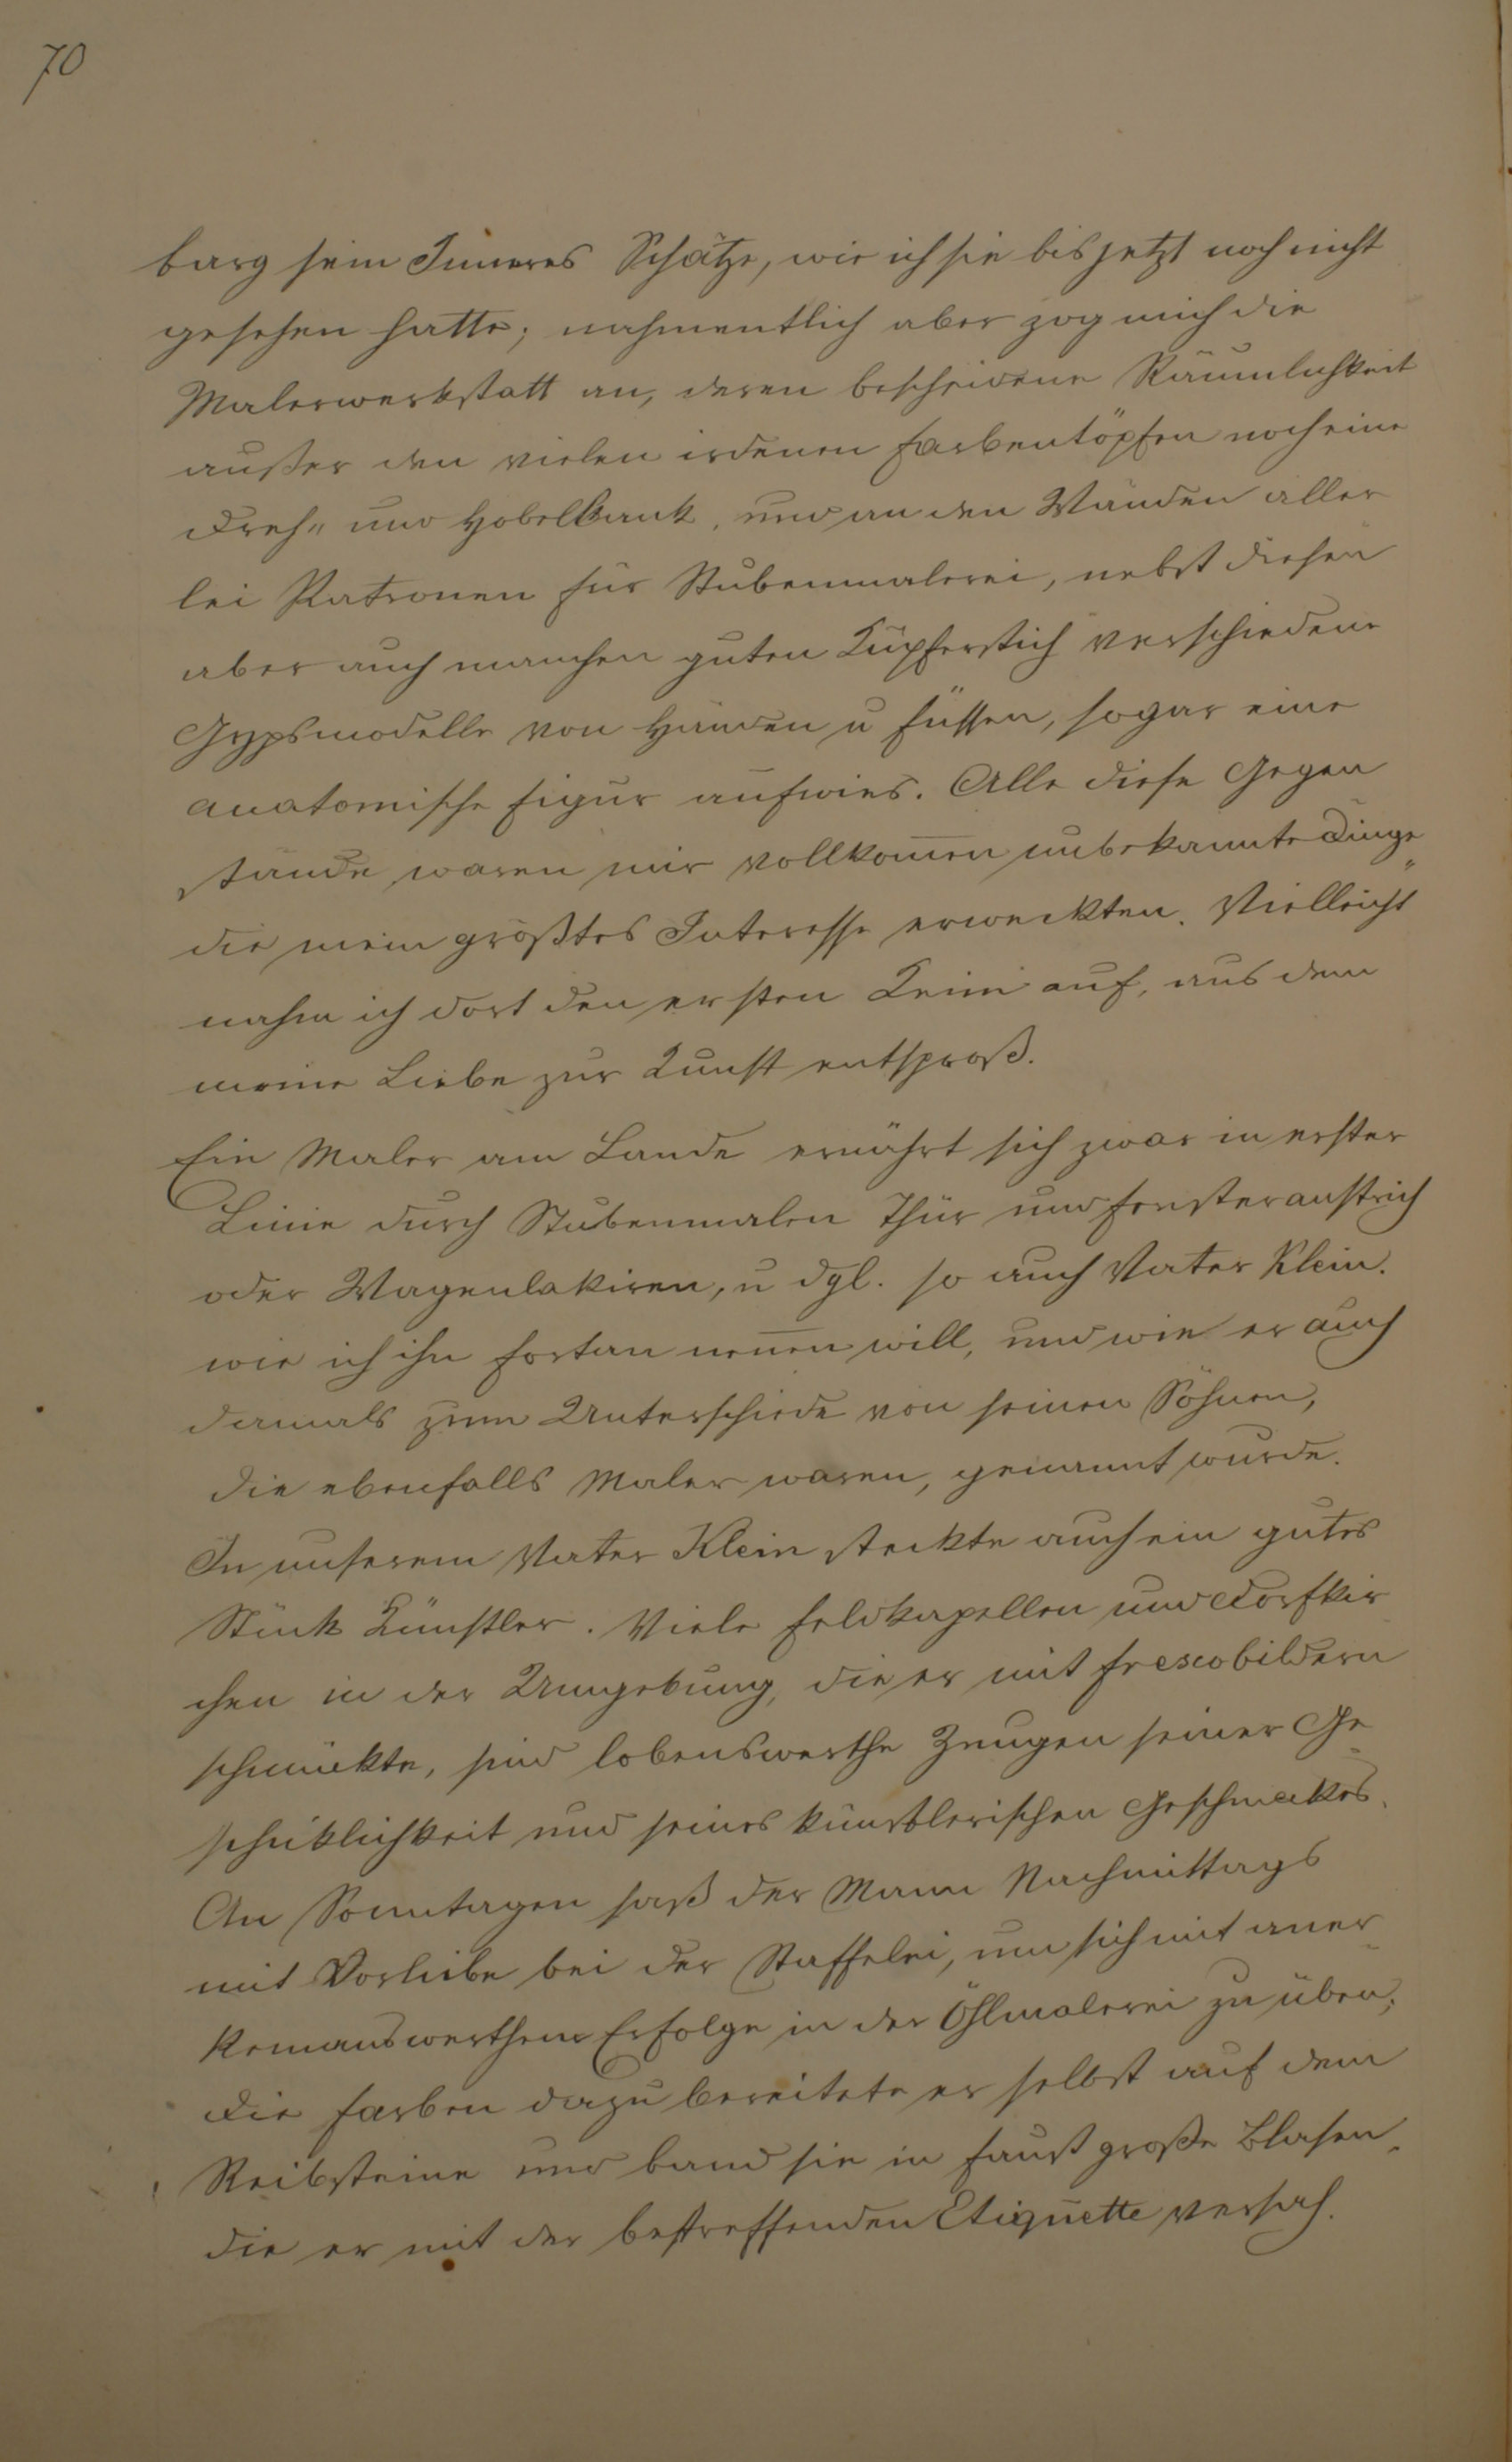 70
barg sein Inneres Schätze, wie ich sie bis jetzt noch nicht
gesehen hatte; nahmentlich aber zog mich die
Malerwerkstatt an, deren bescheidene Räumlichkeit
außer den vielen irdenen Farbentöpfen noch eine
Dreh- und Hobelbank, und an den Wänden aller
lei Patronen für Stubenmalerei, nebst diesen
aber auch manchen guten Kupferstich verschiedene
Gypsmodelle von Händen u Füssen, sogar eine
anatomische Figur aufwies. Alle diese Gegen
stände waren mir vollkom̅en unbekannte Dinge,
die mein größtes Interesse erweckten. Vielleicht
nahm ich dort den ersten Keim auf, aus dem
meine Liebe zur Kunst entsproß.
Ein Maler am Lande ernährt sich zwar in erster
Linie durch Stubenmalen Thür und Fensteranstrich
oder Wagenlakiren, u dgl. so auch Vater Klein.
wie ich ihn fortan nen̅en will, und wie er auch
damals zum Unterschiede von seinen Söhnen,
die ebenfalls Maler waren, genannt wurde.
In unserem Vater Klein steckte auch ein gutes
Stück Künstler. Viele Feldkapellen und Dorfkir
chen in der Umgebung, die er mit Frescobildern
schmückte, sind lobenswerthe Zeugen seiner Ge
schiklichkeit und seines künstlerischen Geschmakes.
An Sonntagen saß der Mann Nachmittags
mit Vorliebe bei der Staffelei, um sich mit aner
kennenswerthem Erfolge in der Öhlmalerei zu üben;
die Farben dazu bereitete er selbst auf dem
Reibsteine und band sie in faustgroße Blasen,
die er mit der bestreffenden Etiquette versah.